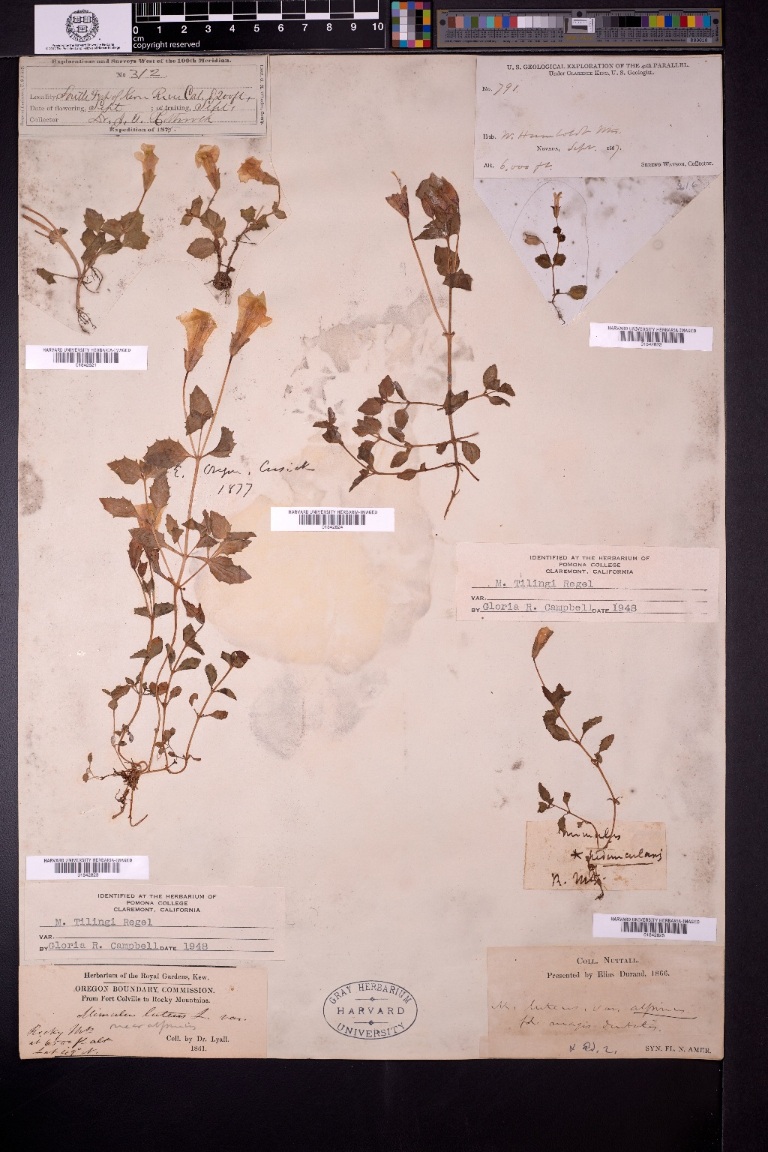 cm
copyright reserved
0 1 2 3 4 5 6 7 8 9 10
Explorations and Surveys West of the 100th Meridian.
No 312
Locality South Fork of Kern River Cal. 8200 ft.
Date of flowering, Sept ; of fruiting, Sept.
Collector Dr. J. T. Rothrock
Expedition of 1875
U. S. GEOLOGICAL EXPLORATION OF THE 40TH PARALLEL.
Under CLARENCE KING, U. S. Geologist.
No. 791
Hab. W. Humboldt Mts.
NEVADA, Sept. 1867.
Alt. 6,000 ft.
SERENO WATSON, Collector.
HARVARD UNIVERSITY HERBARIA-IMAGED
HARVARD UNIVERSITY HERBARIA-IMAGED
E. Oregon, Cusick
1877
HARVARD UNIVERSITY HERBARIA-IMAGED
IDENTIFIED AT THE HERBARIUM OF
POMONA COLLEGE
CLAREMONT, CALIFORNIA
M. Tilingi Regel
VAR.
BY Gloria R. Campbell DATE 1948
Mimulus
R. Mts.
HARVARD UNIVERSITY HERBARIA-IMAGED
HARVARD UNIVERSITY HERBARIA-IMAGED
IDENTIFIED AT THE HERBARIUM OF
POMONA COLLEGE
CLAREMONT, CALIFORNIA
M. Tilingi Regel
VAR.
BY Gloria R. Campbell DATE 1948
Herbarium of the Royal Gardens, Kew.
OREGON BOUNDARY COMMISSION.
From Fort Colville to Rocky Mountains.
Mimulus luteus L. var.
near alpinus
Rocky Mts
at 6500 ft alt
Lat 49° N.
Coll. by Dr. Lyall.
1861.
GRAY HERBARIUM
HARVARD
UNIVERSITY
COLL. NUTTALL.
Presented by Elias Durand, 1866.
M. luteus, var. alpinus
SYN. FL. N. AMER.